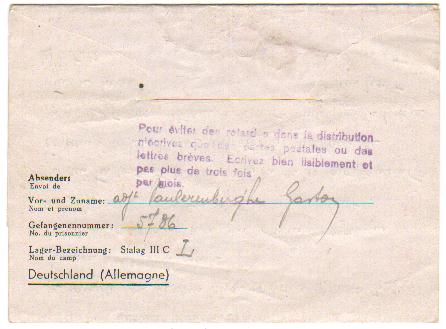 Pour éviter des retards dans la distribution
n'écrivez que des cartes postales ou des
lettres brèves. Ecrivez bien lisiblement et
pas plus de trois fois
par mois.
Absenders
Envoi de
Vor- und Zuname: adjt Gaston
Nom et prenom
Gefangenennummer: 5706
No. du prisonnier
Lager-Bezeichnung: Stalag III C I
Nom du camp
Deutschland (Allemagne)